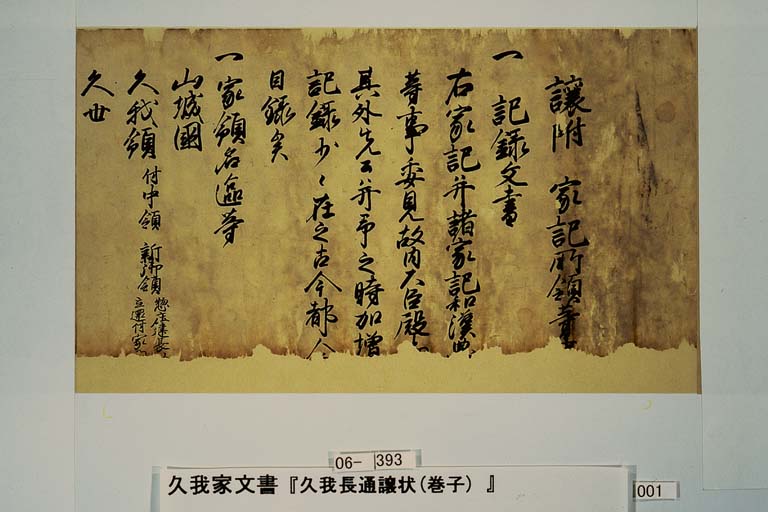 讓附 家記所領等
一 記録文書
右家記并諸家記和漢
等事委見故内大臣殿
其外先公并予之時加增
記録少々在之古今都合
目録矣
一 家領名遠等
山城國
久我領 付中領 新御領
久世
06- 393
久我家文書『久我長通譲状(巻子) 』
001